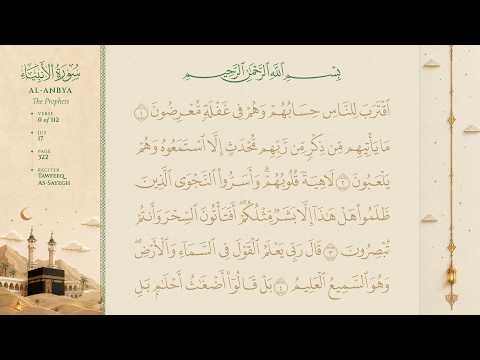 سُورَةُ الأَنْبِيَاءِ
AL-ANBYA
The Prophets
VERSE
0 of 112
JUZ
17
PAGE
322
RECITER
TAWFEEQ
AS-SAYEGH
بِسْمِ اللَّهِ الرَّحْمَٰنِ الرَّحِيمِ
ٱقْتَرَبَ لِلنَّاسِ حِسَابُهُمْ وَهُمْ فِى غَفْلَةٍ مُّعْرِضُونَ ١
مَا يَأْتِيهِم مِّن ذِكْرٍ مِّن رَّبِّهِم مُّحْدَثٍ إِلَّا ٱسْتَمَعُوهُ وَهُمْ
يَلْعَبُونَ ٢ لَاهِيَةً قُلُوبُهُمْ ۗ وَأَسَرُّوا۟ ٱلنَّجْوَى ٱلَّذِينَ
ظَلَمُوا۟ هَلْ هَٰذَآ إِلَّا بَشَرٌ مِّثْلُكُمْ ۖ أَفَتَأْتُونَ ٱلسِّحْرَ وَأَنتُمْ
تُبْصِرُونَ ٣ قَالَ رَبِّى يَعْلَمُ ٱلْقَوْلَ فِى ٱلسَّمَآءِ وَٱلْأَرْضِ ۖ
وَهُوَ ٱلسَّمِيعُ ٱلْعَلِيمُ ٤ بَلْ قَالُوٓا۟ أَضْغَٰثُ أَحْلَٰمٍۭ بَلِ